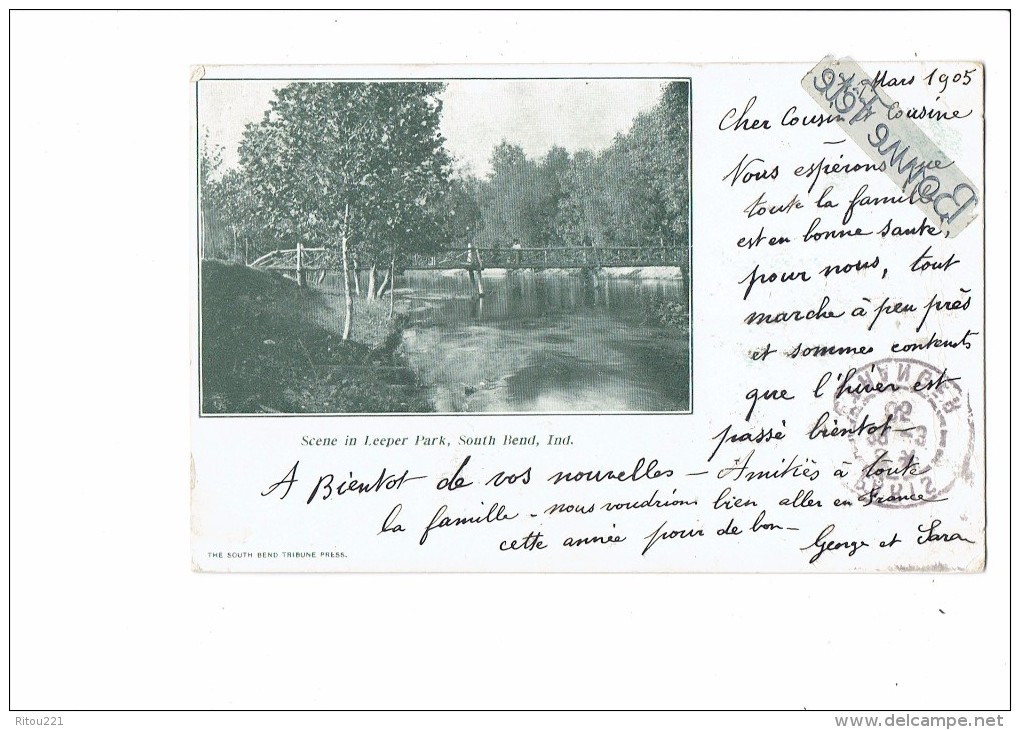 Mars 1905
Cher Cousin Cousine
Nous espérons que
toute la famille
est en bonne santé,
pour nous, tout
marche à peu près
et sommes contents
que l'hiver est
passé bientot —
Scene in Leeper Park, South Bend, Ind.
A Bientot de vos nouvelles — Amitiés à toute
la famille - nous voudrions bien aller en France
cette année pour de bon —
George et Sara
THE SOUTH BEND TRIBUNE PRESS.
ETRANGER
PARIS
Ritou221
www.delcampe.net